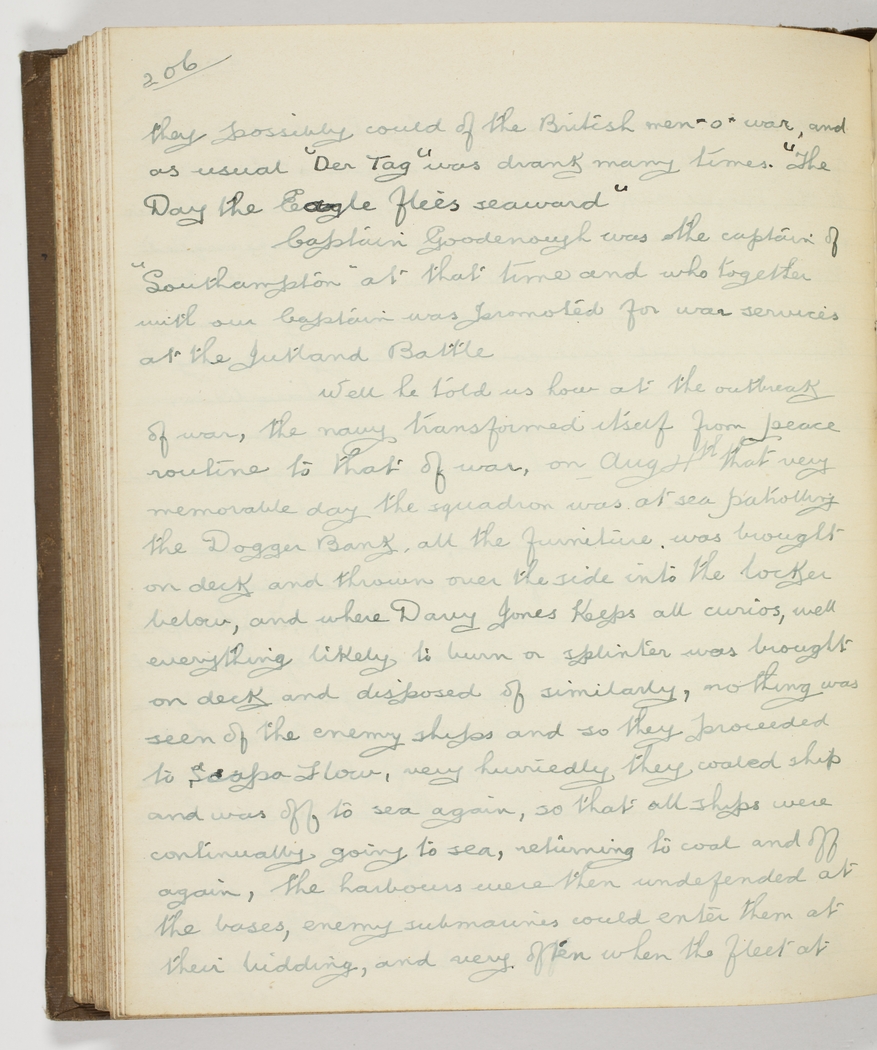 206
they possibly could of the British men-o-war, and
as usual "Der Tag" was drank many times. "The
Day the Eagle flies seaward"
Captain Goodenough was the captain of
"Southampton" at that time and who together
with our Captain was promoted for war services
at the Jutland Battle
Well he told us how at the outbreak
of war, the navy transformed itself from peace
routine to that of war, on Aug 4th that very
memorable day the squadron was at sea patrolling
the Dogger Bank, all the furniture was brought
on deck and thrown over the side into the locker
below, and where Davy Jones Keeps all curios, well
everything likely to burn or splinter was brought
on deck and disposed of similarly, nothing was
seen of the enemy ships and so they proceeded
to Scapa Flow, very hurriedly they coaled ship
and was off to sea again, so that all ships were
continually going to sea, returning to coal and off
again, the harbours were then undefended at
the bases, enemy submarines could enter them at
their bidding, and very often when the fleet at